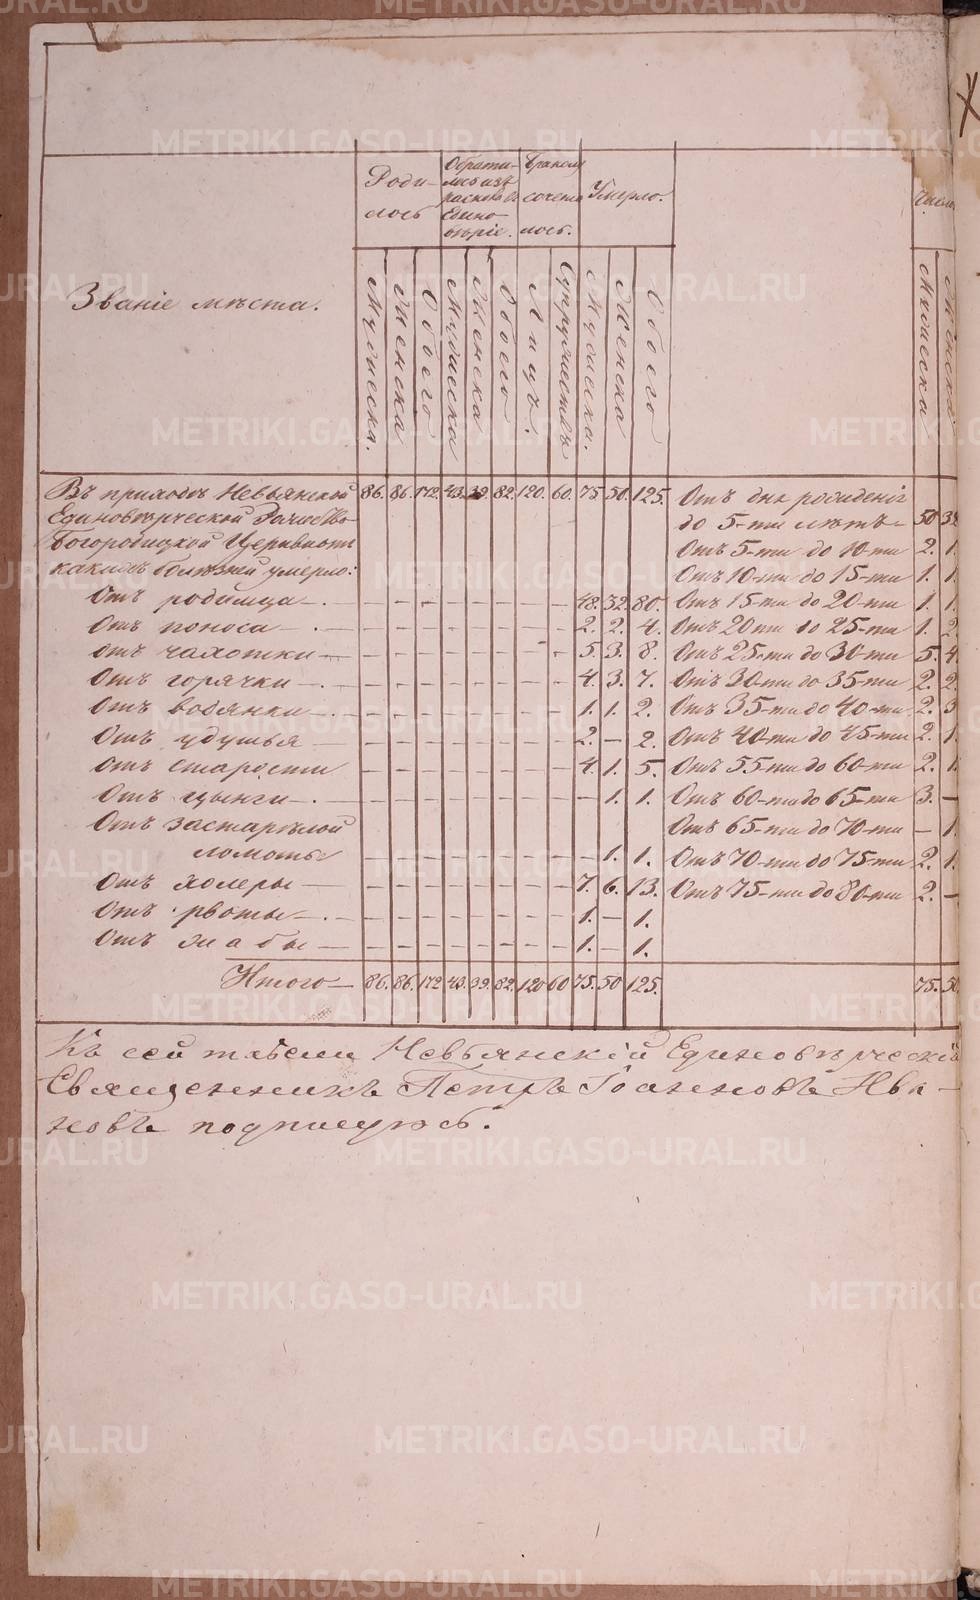 Званіе мѣста.
Роди-
лось
Обрати-
лось изъ
раскола въ
Едино-
вѣріе.
Бракомъ
сочета
лось.
Умерло.
Число
Мужеска.
Женска
Обоего
Мужеска
Женска
Обоего
Лицъ.
Супружествъ
Мужеска.
Женска
Обоего
Мужеска
Женска
Въ приходѣ Невьянской 86. 86. 172. 43. 39. 82. 120. 60. 75. 50. 125. Отъ дня рожденія
Единовѣрческой Рождество до 5-ти лѣтъ- 50 32
Богородицкой Церкви отъ Отъ 5-ти до 10-ти 2. 1.
какихъ болѣзней умерло: Отъ 10-ти до 15-ти 1. 1.
Отъ родимца -. - - - - - - - - 48. 32. 80. Отъ 15-ти до 20-ти 1. 1.
Отъ поноса - . - - - - - - - - 2. 2. 4. Отъ 20 ти до 25-ти 1. 2.
отъ чахотки - - - - - - - - - 5. 3. 8. Отъ 25-ти до 30-ти 5. 4.
Отъ горячки -. - - - - - - - - 4. 3. 7. Отъ 30-ти до 35-ти 2. 2.
Отъ водянки -. - - - - - - - - 1. 1. 2. Отъ 35-ти до 40-ти 2. 3
Отъ удушья - - - - - - - - - 2. - 2. Отъ 40-ти до 45-ти 2. 1.
Отъ старости - - - - - - - - 4. 1. 5. Отъ 55-ти до 60-ти 2. 1.
Отъ цынги -. - - - - - - - - - 1. 1. Отъ 60-ти до 65-ти 3. -
Отъ застарѣлой Отъ 65-ти до 70-ти - 1.
ломоты - - - - - - - - - 1. 1. Отъ 70-ти до 75-ти 2. 1.
Отъ холеры - - - - - - - - - 7. 6. 13. Отъ 75-ти до 80-ти 2. -
Отъ рвоты -. - - - - - - - - 1. - 1.
Отъ жабы - - - - - - - - - 1. - 1.
Итого - 86. 86. 172 43. 39. 82. 120 60 75. 50 125. 75. 50
Къ сей табели Невьянскій Единовѣрческій
Священникъ Петръ Іоанновъ Ива-
новъ подпишусь.
METRIKI.GASO-URAL.RU